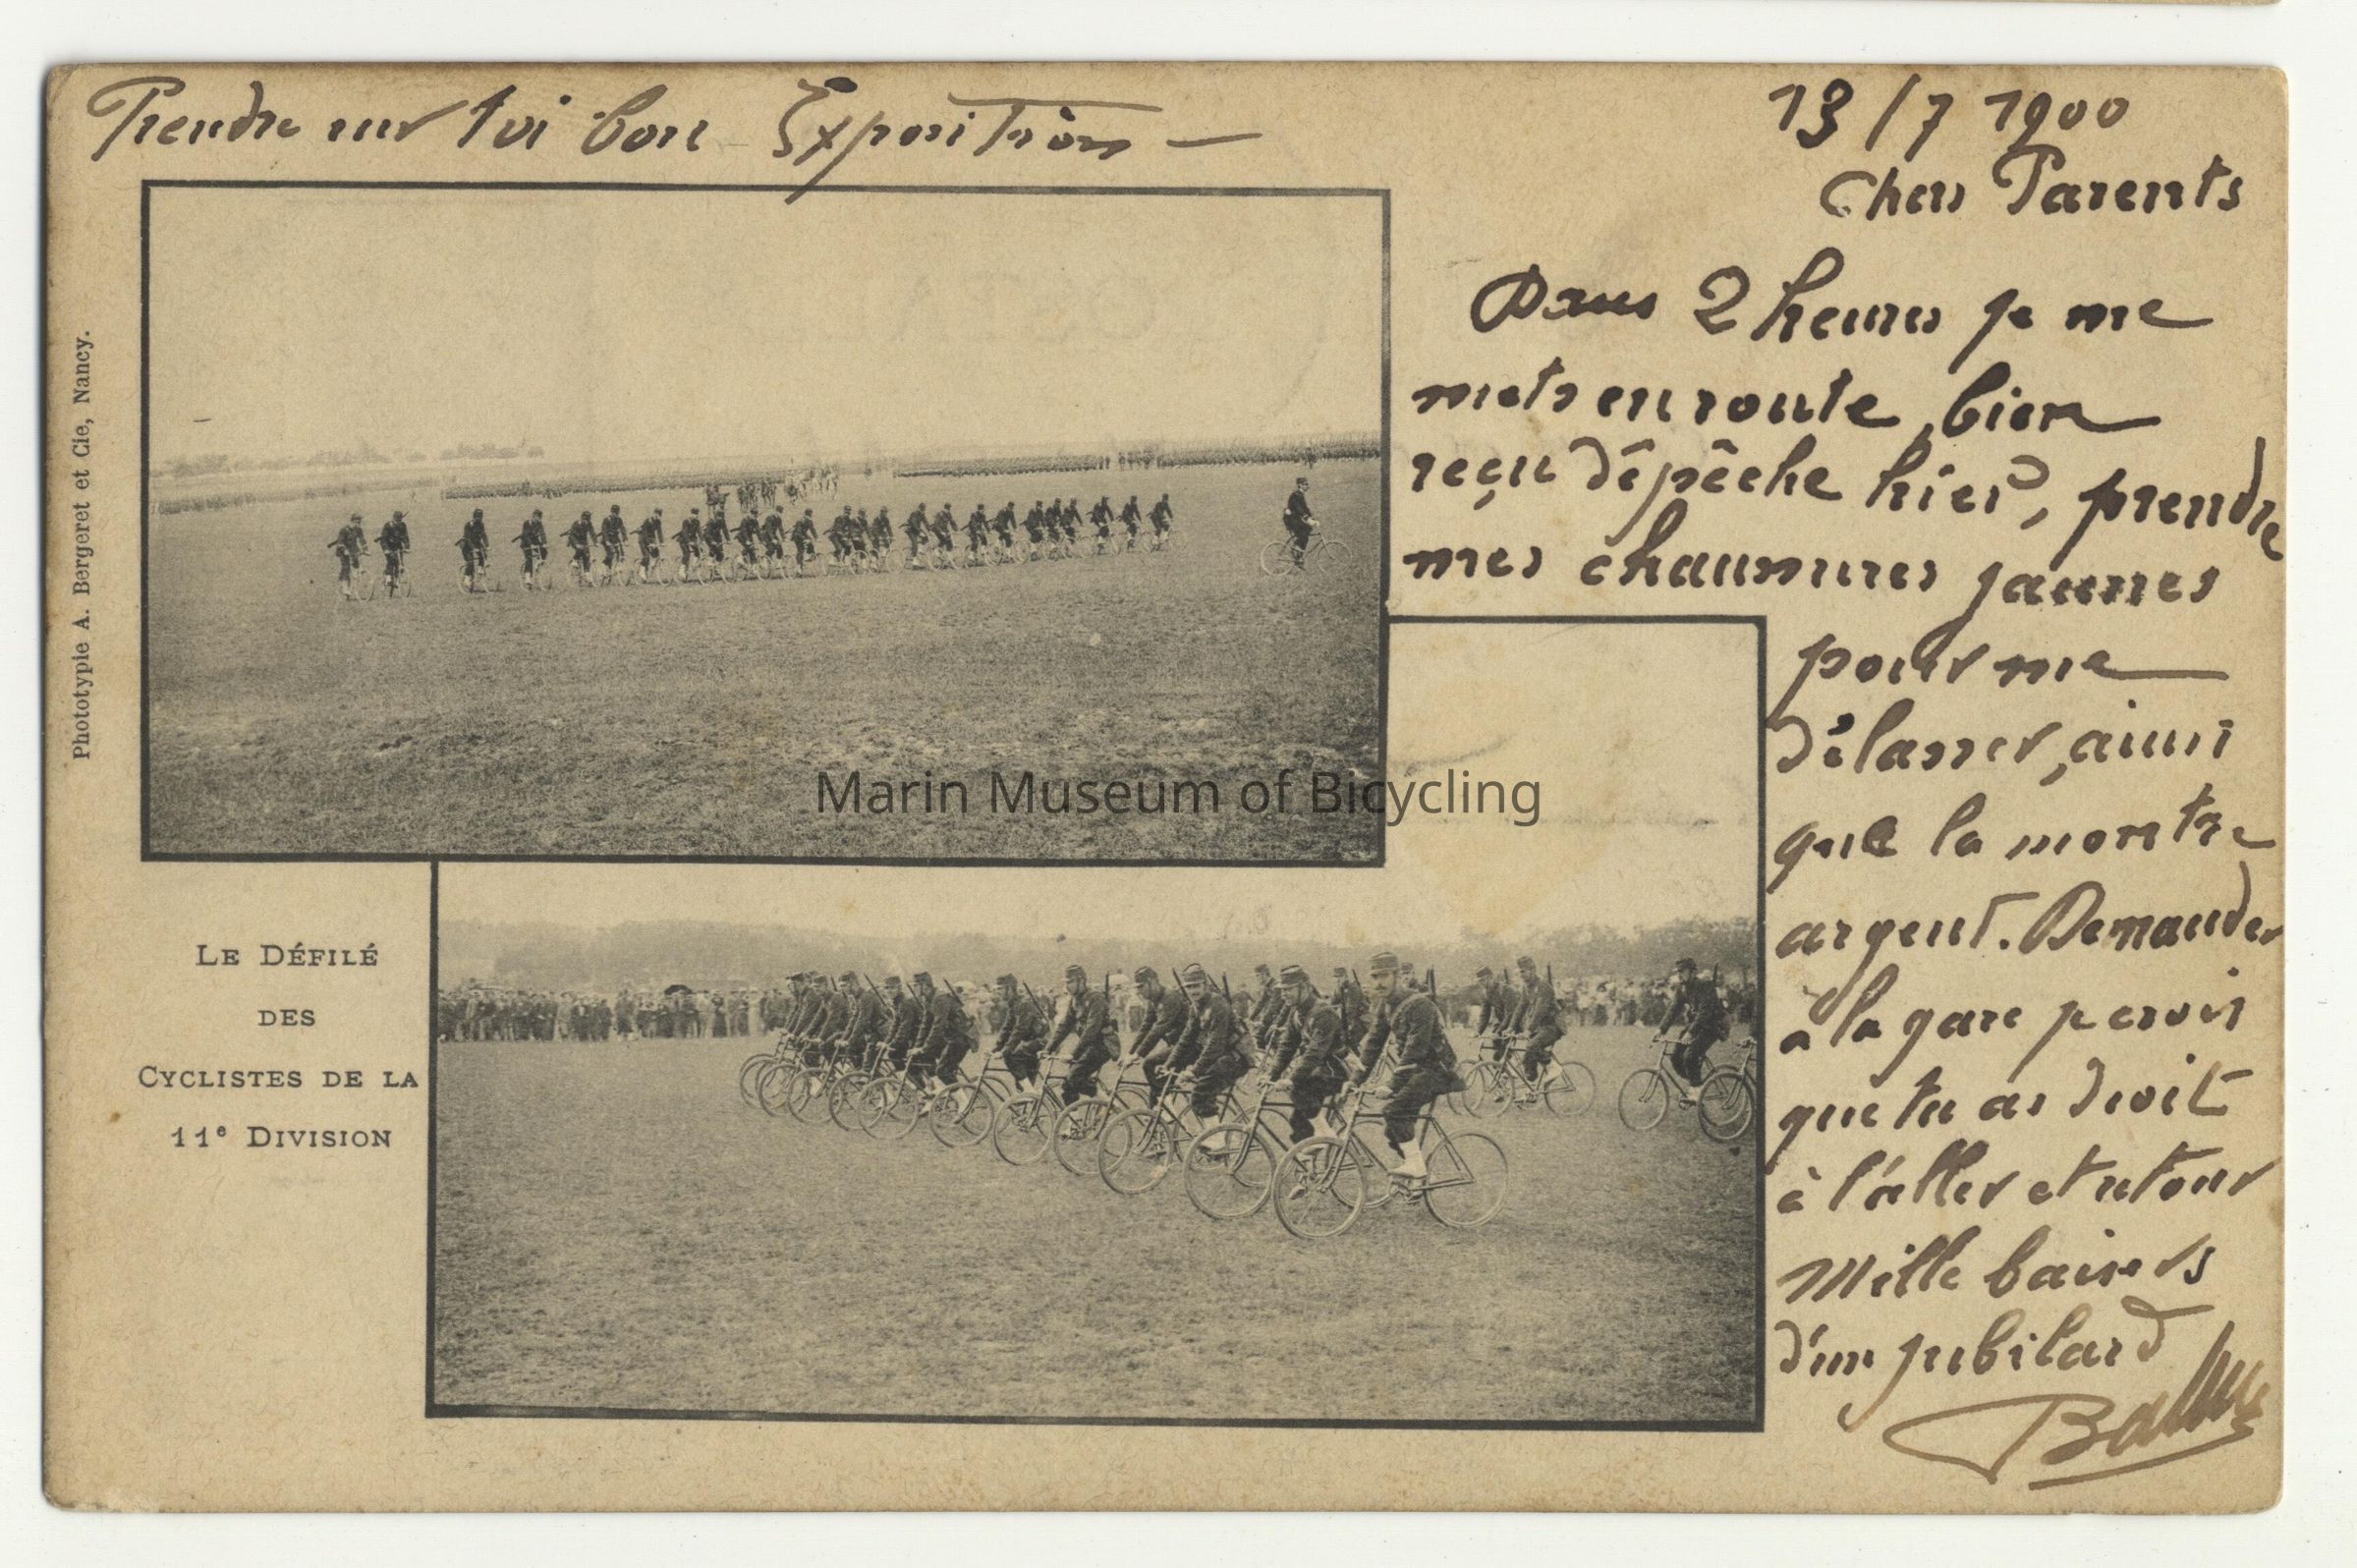 Prendre sur toi bon Exposition —
13/7 1900
Chers Parents
Dans 2 heures je me
mets en route, bien
reçu dépêche hier, prendre
mes chaussures jaunes
pour me
délasser, ainsi
que la montre
argent. Demander
à la gare je crois
que tu as droit
à l'aller et retour
Mille baisers
d'un jubilard
Phototypie A. Bergeret et Cie, Nancy.
Le Défilé
des
Cyclistes de la
11e Division
Marin Museum of Bicycling